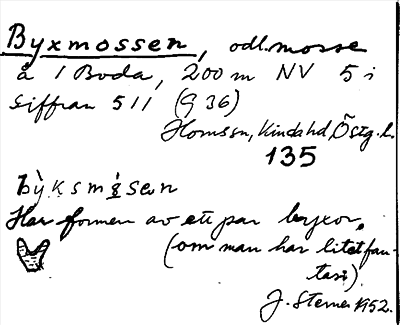 Byxmossen, odl. mosse
å 1 Boda, 200 m NV 5 i
siffran 511 (G 36)
Kinda hd, Östg. l.
135
by̍ksmȯsen
Har formen av ett par byxor,
(om man har litet fan-
tasi).
J. Sterner 1952.